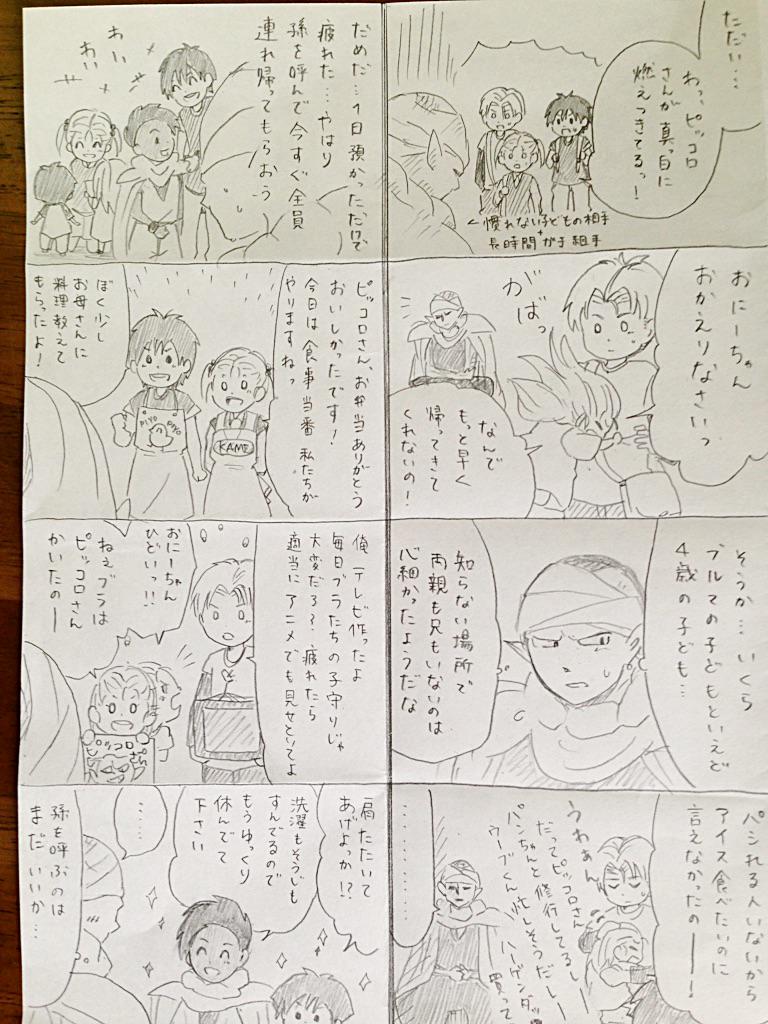 ただい…
わっ、ピッコロ
さんが真っ白に
燃えつきてるっ!
←慣れない子どもの相手
+
長時間ガチ組手
おにーちゃん
おかえりなさいっ
がばっ
なんで
もっと早く
帰ってきて
くれないの!
そうか…いくら
ブルマの子どもといえど
4歳の子ども…
知らない場所で
両親も兄もいないのは
心細かったようだな
パシれる人いないから
アイス食べたいのに
言えなかったのー!
うわぁん
だってピッコロさん
パンちゃんと修行してるしー
ウーブくん忙しそうだしー
ハーゲンダッツ
買って
………
だめだ…1日預かっただけで
疲れた…やはり
孫を呼んで今すぐ全員
連れ帰ってもらおう
わい
わい
ピッコロさん、お弁当ありがとう
おいしかったです!
今日は食事当番 私たちが
やりますねっ
ぼく少し
お母さんに
料理教えて
もらったよ!
PIYO PIYO
KAME
俺、テレビ作ったよ
毎日ブラたちの子守りじゃ
大変だろ?疲れたら
適当にアニメでも見せといてよ
おにーちゃん
ひどいっ!!
ねぇブラは
ピッコロさん
かいたのー
ピッコロ
さん
肩たたいて
あげよっか!?
洗濯もそうじも
すんでるので
もうゆっくり
休んでて
下さい
……
孫を呼ぶのは
まだいいか…